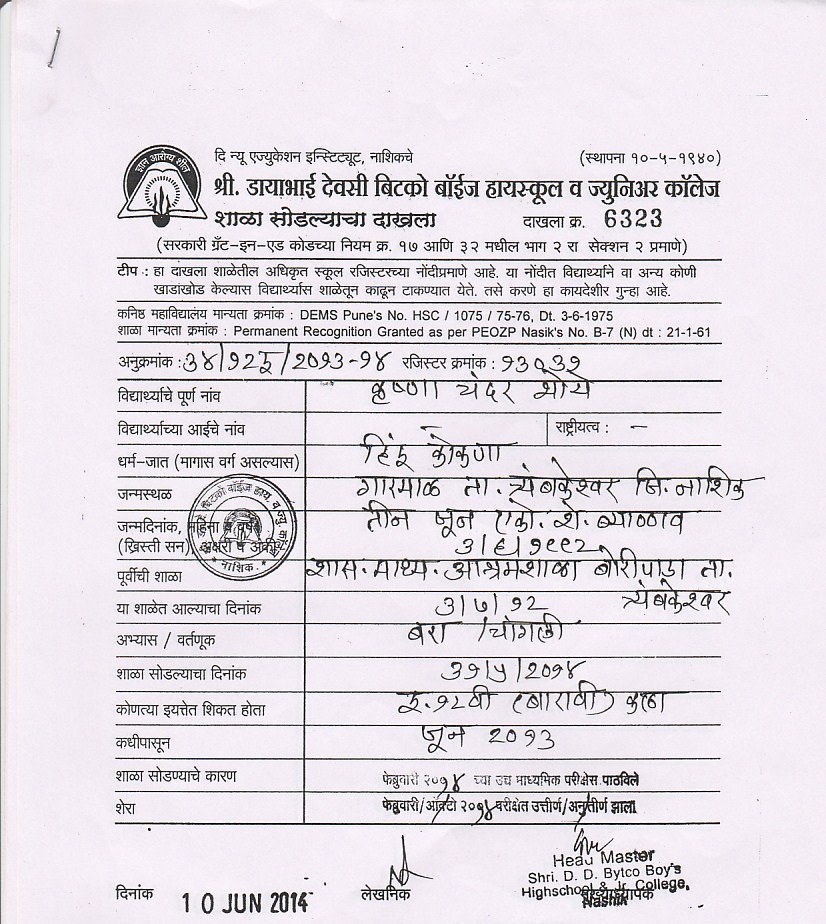 ज्ञान आरोग्य शील
दि न्यू एज्युकेशन इन्स्टिट्यूट, नाशिकचे (स्थापना १०-५-१९४०)
श्री. डायाभाई देवसी बिटको बॉईज हायस्कूल व ज्युनिअर कॉलेज
शाळा सोडल्याचा दाखला दाखला क्र. 6323
(सरकारी ग्रँट-इन-एड कोडच्या नियम क्र. १७ आणि ३२ मधील भाग २ रा सेक्शन २ प्रमाणे)
टीप : हा दाखला शाळेतील अधिकृत स्कूल रजिस्टरच्या नोंदीप्रमाणे आहे. या नोंदीत विद्यार्थ्याने वा अन्य कोणी
खाडांखोड केल्यास विद्यार्थ्यास शाळेतून काढून टाकण्यात येते. तसे करणे हा कायदेशीर गुन्हा आहे.
कनिष्ठ महाविद्यालय मान्यता क्रमांक : DEMS Pune's No. HSC / 1075 / 75-76, Dt. 3-6-1975
शाळा मान्यता क्रमांक : Permanent Recognition Granted as per PEOZP Nasik's No. B-7 (N) dt : 21-1-61
अनुक्रमांक : ३४/१२इ/२०१३-१४ रजिस्टर क्रमांक : १३०३१
विद्यार्थ्याचे पूर्ण नांव कृष्णा चंदर भोये
विद्यार्थ्याच्या आईचे नांव - राष्ट्रीयत्व : -
धर्म-जात (मागास वर्ग असल्यास) हिंदू कोकणा
जन्मस्थळ गारमाळ ता. त्र्यंबकेश्वर जि. नाशिक
जन्मदिनांक, महिना व वर्ष तीन जून एको. शे. ब्याण्णव
(ख्रिस्ती सन), अक्षरी व अंकी ३/६/१९९२
पूर्वीची शाळा शास. माध्य. आश्रमशाळा बोरीपाडा ता.
त्र्यंबकेश्वर
या शाळेत आल्याचा दिनांक ३/७/१२
अभ्यास / वर्तणूक बरा / चांगली
शाळा सोडल्याचा दिनांक ३१/५/२०१४
कोणत्या इयत्तेत शिकत होता इ. १२वी (बारावी) कला
कधीपासून जून २०१३
शाळा सोडण्याचे कारण फेब्रुवारी २०१४ च्या उच्च माध्यमिक परीक्षेस पाठविले
शेरा फेब्रुवारी/ऑक्टो २०१४ परीक्षेत उत्तीर्ण/अनुत्तीर्ण झाला
Head Master
Shri. D. D. Bytco Boy's
Highschool & Jr. College,
Nashik
दिनांक 10 JUN 2014 लेखनिक मुख्याध्यापक